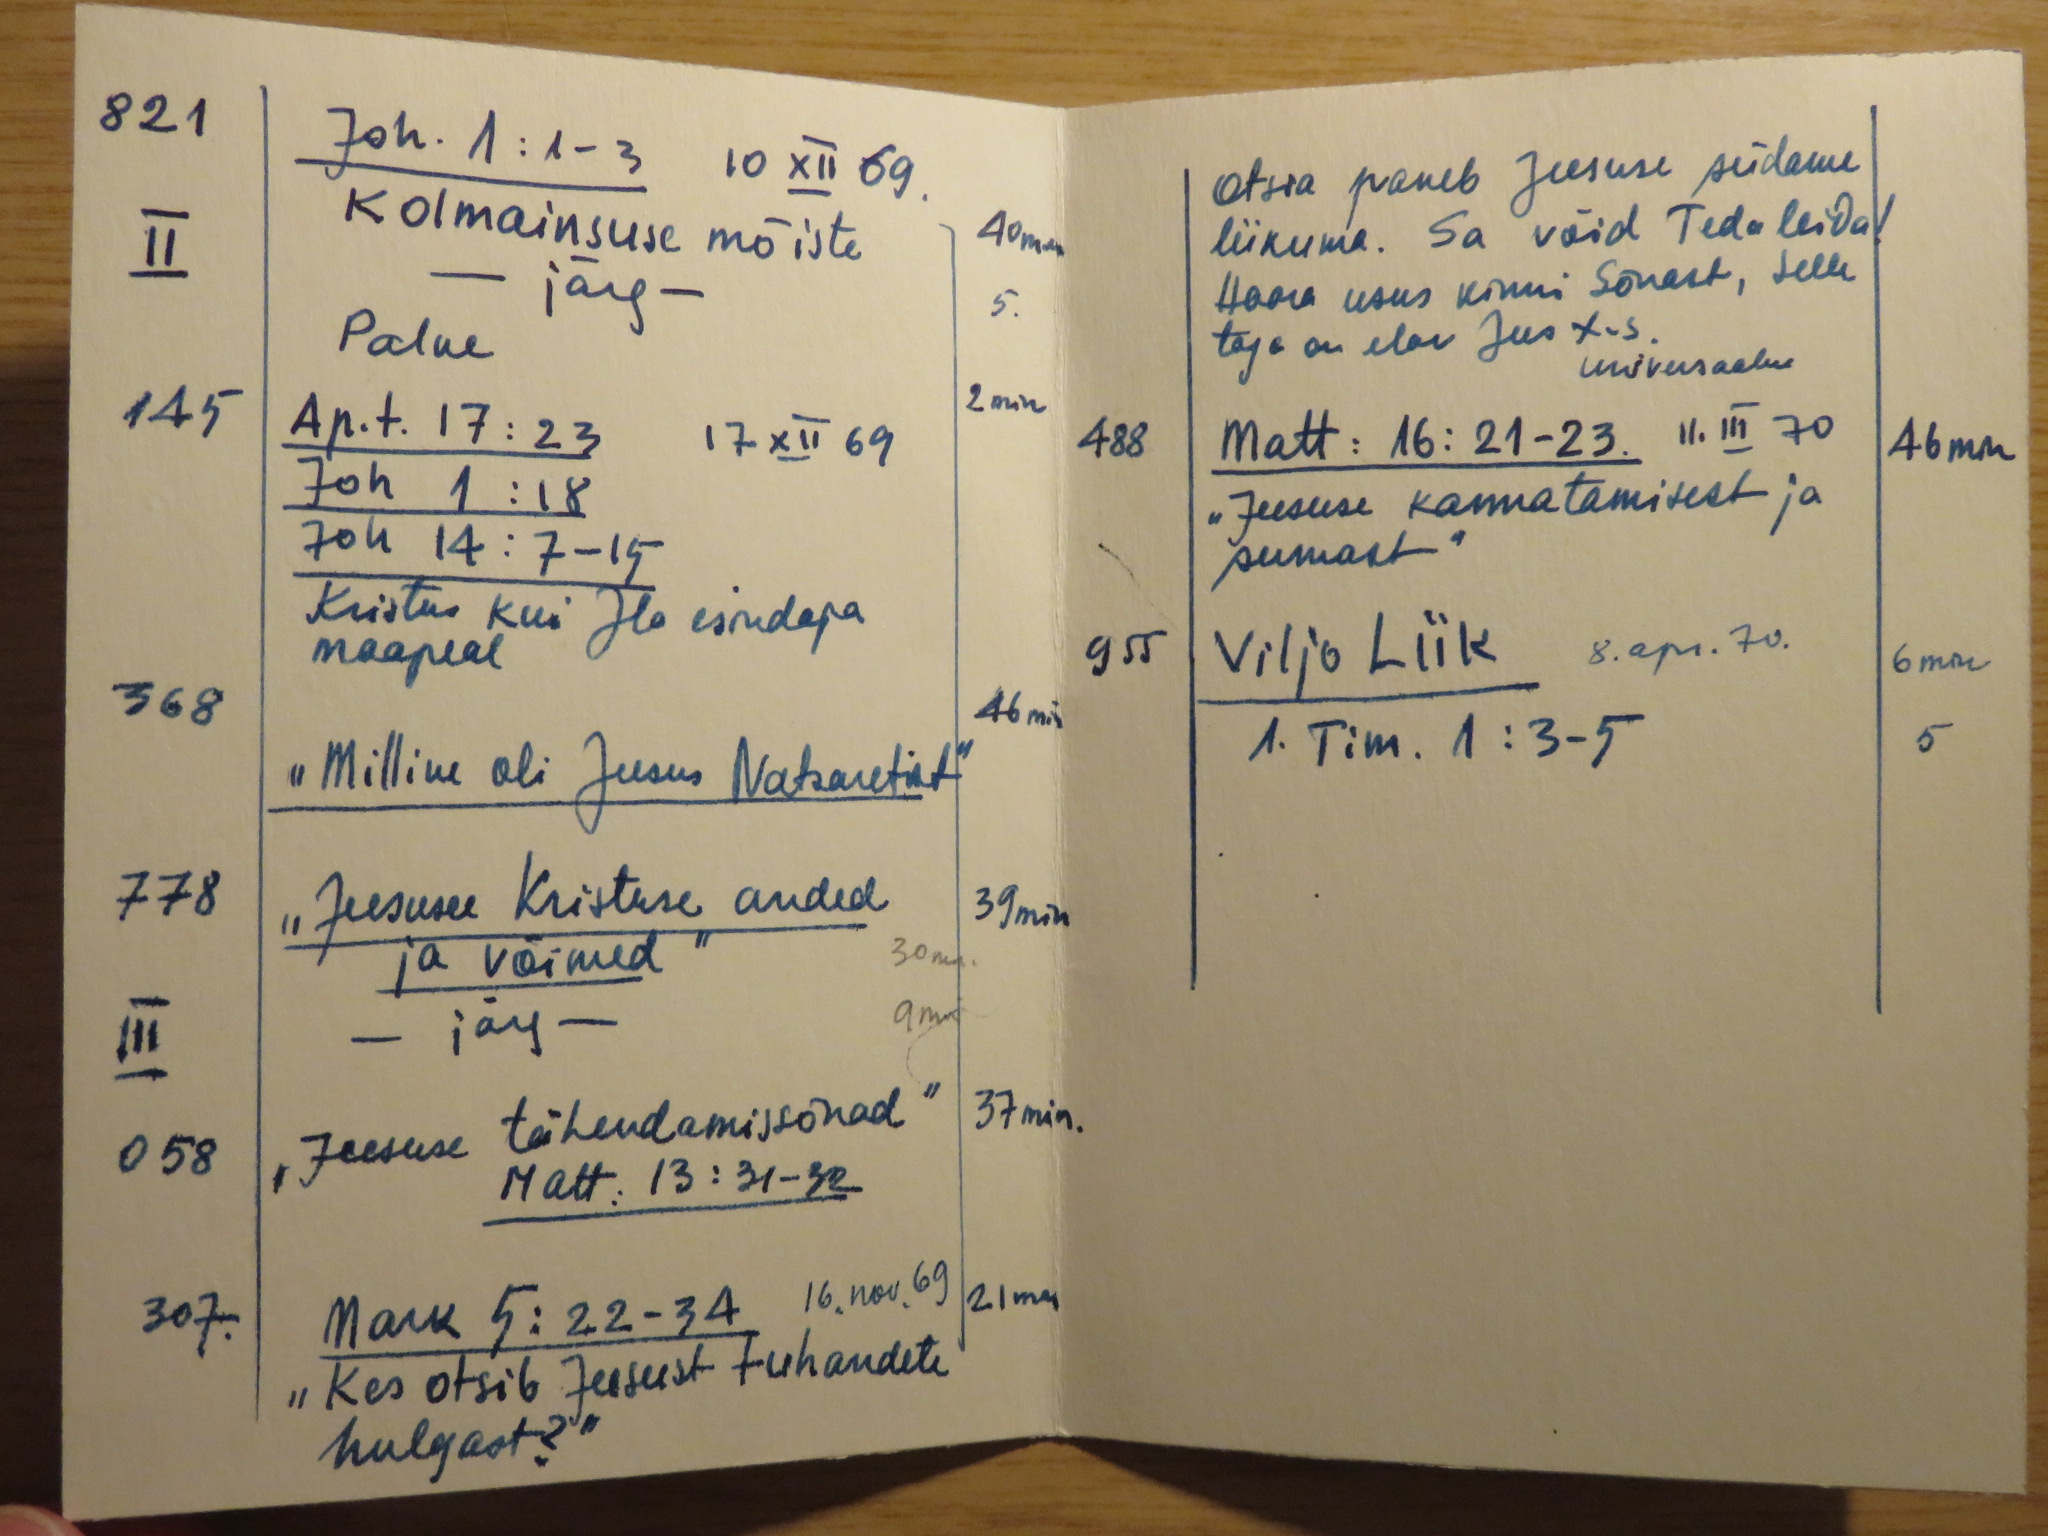 821 Joh. 1:1-3 10 XII 69.
Kolmainsuse mõiste 40 min
II — järg — 5.
Palve
145 Ap.t. 17:23 17 XII 69 2 min
Joh 1:18
Joh 14:7-15
Kristus kui Jla esindaja
maapeal
368 46 min
„Milline oli Jeesus Natsaretist"
778 „Jeesuse Kristuse anded 39 min
ja võimed" 30 min.
III — järg — 9 min
058 „Jeesuse tähendamissõnad" 37 min.
Matt. 13:31-32
307. Mark 5:22-34 16. nov. 69 21 min
„Kes otsib Jeesust tuhandete
hulgast?"
Otsia paneb Jeesuse südame
liikuma. Sa võid Teda leida!
Haara usus kinni Sõnast, selle
taga on elav Jees X-s.
universaalne
488 Matt: 16:21-23. 11. III 70 46 min
„Jeesuse kannatamisest ja
surmast"
955 Viljo Liik 8. apr. 70. 6 min
1. Tim. 1:3-5 5